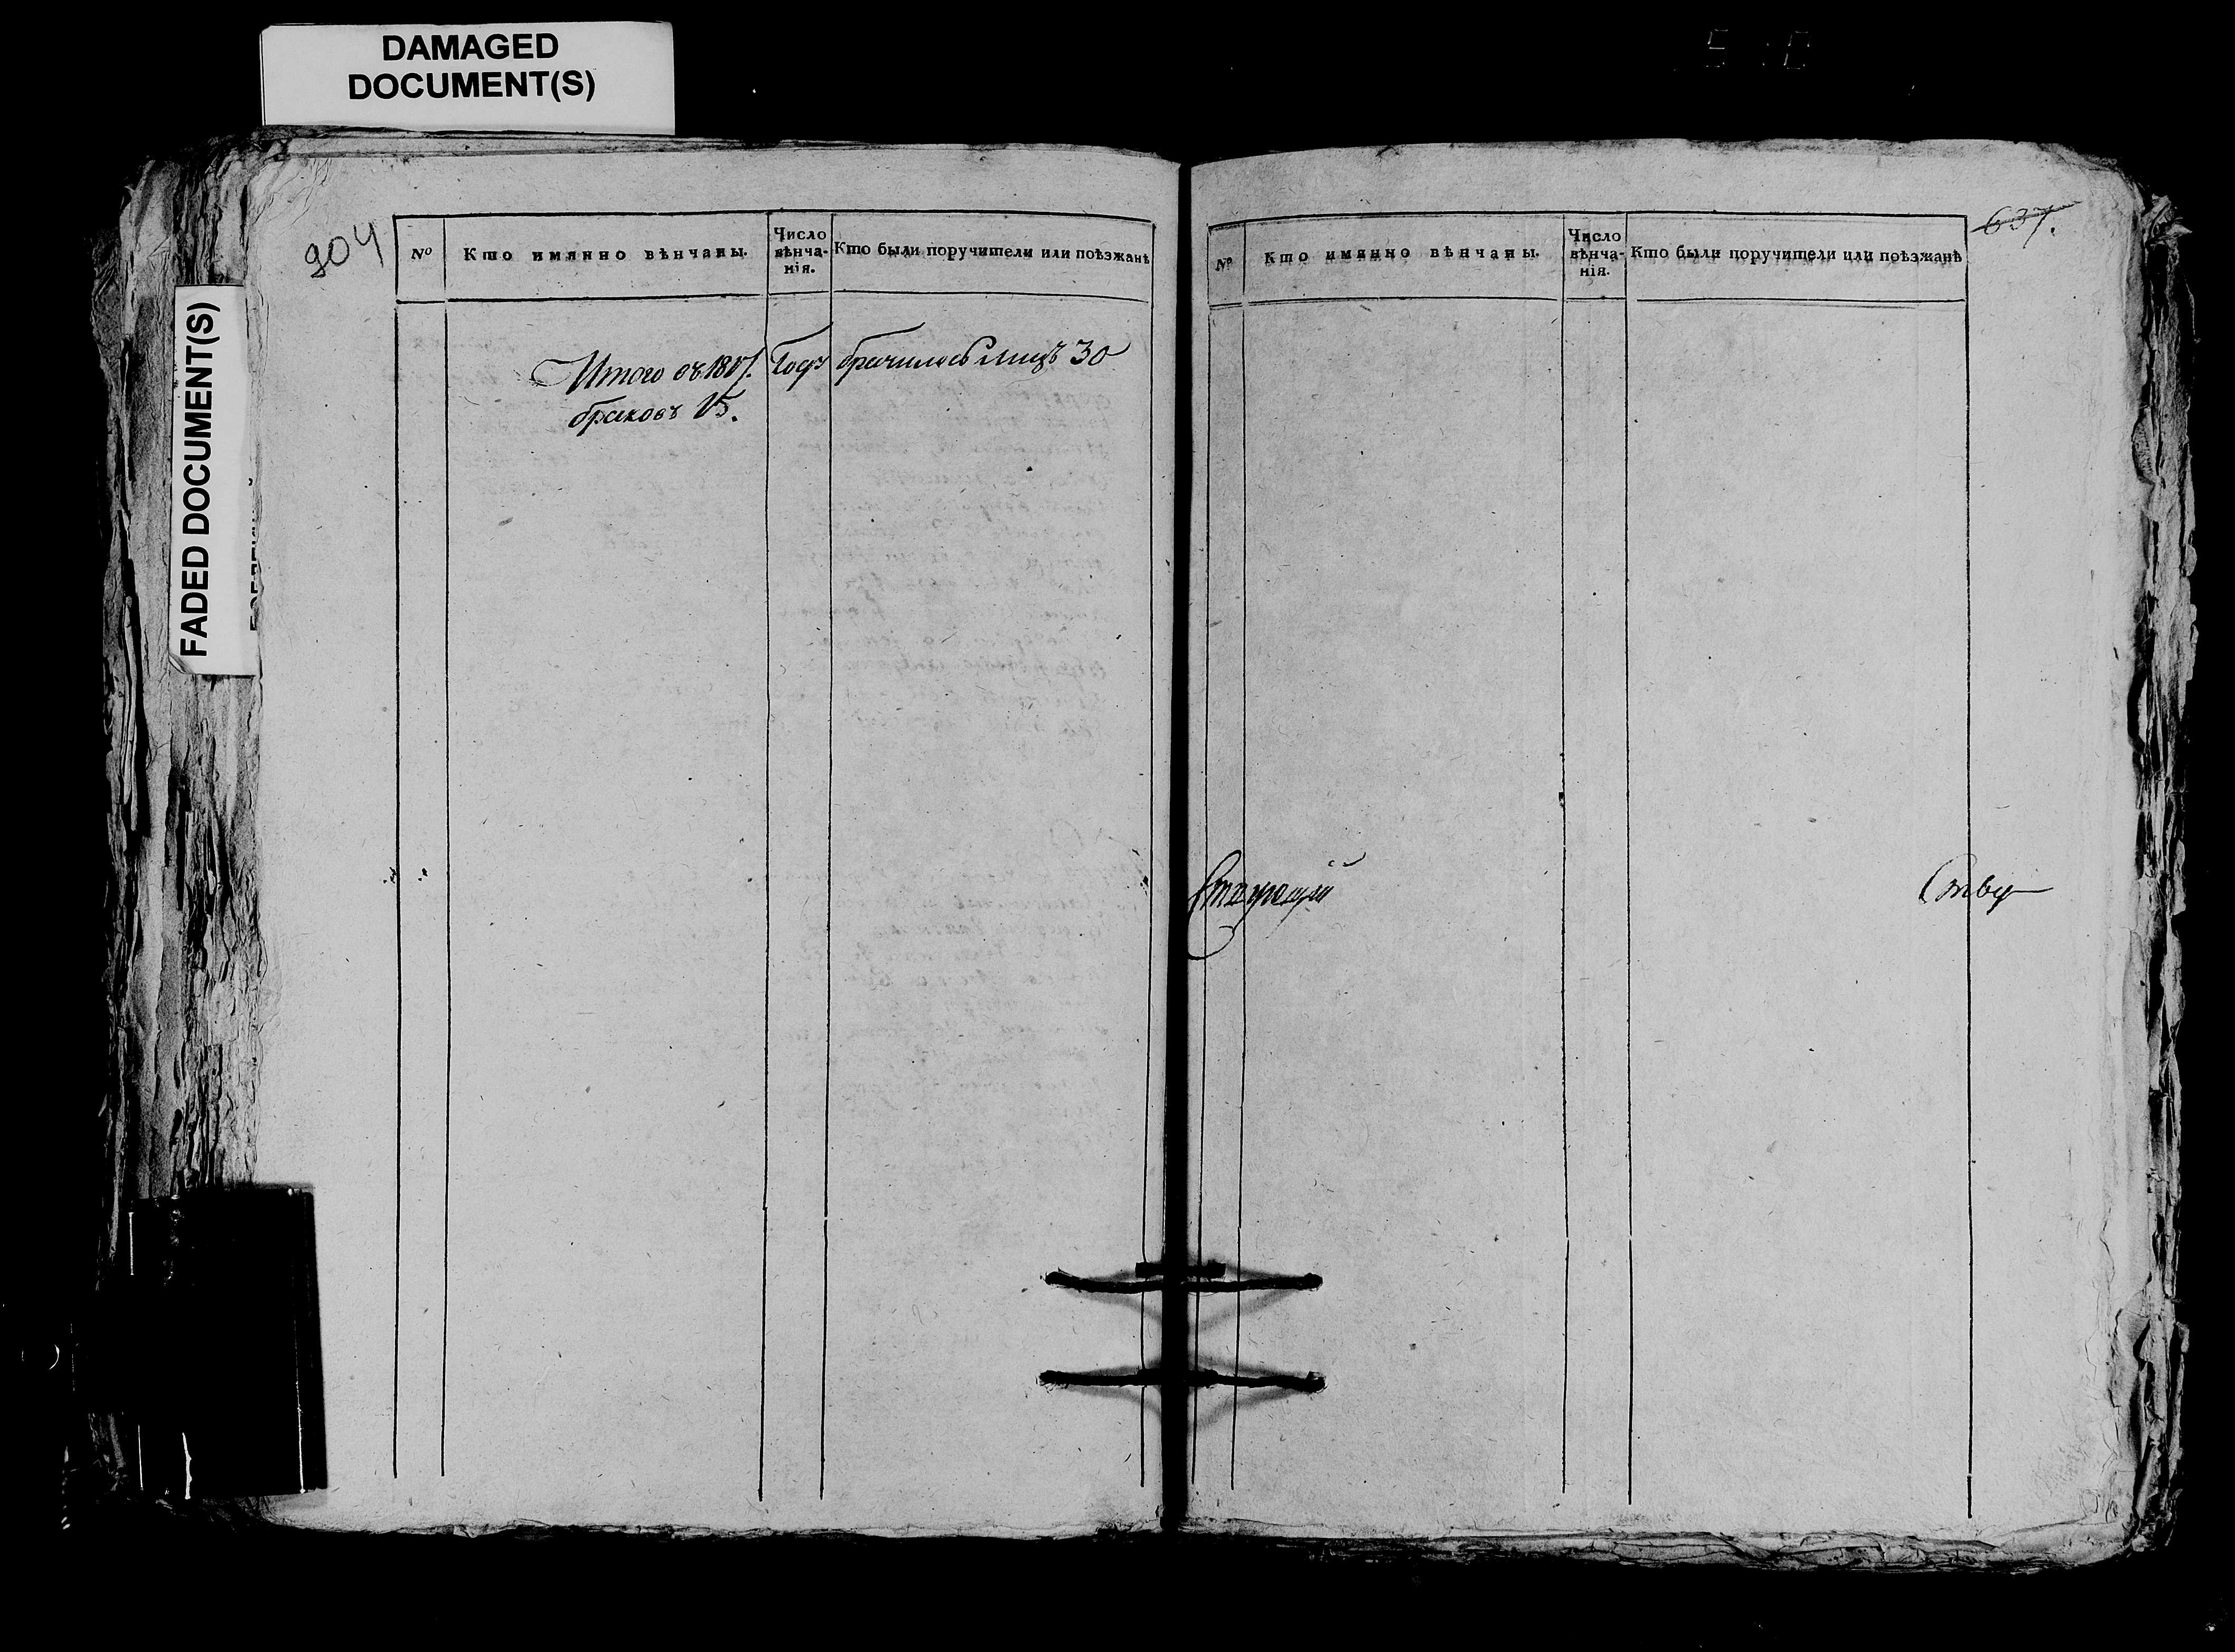 DAMAGED
DOCUMENT(S)
FADED DOCUMENT(S)
904
№ Кто имянно вѣнчаны. Число вѣнча-нія. Кто были поручители или поѣзжанѣ
Итого въ 1817. Годѣ брачилось лицъ 30
браковъ 15.
637.
№ Кто имянно вѣнчаны. Число вѣнча-нія. Кто были поручители или поѣзжанѣ